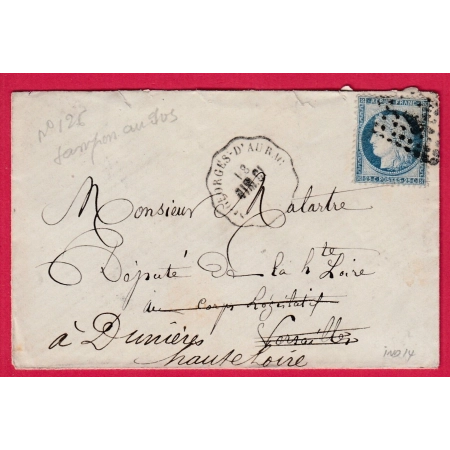 n° 12E
tampon au dos
REPUB. FRANC.
25 C. POSTES 25 C.
GEORGES-D'AURAC
18
JUIN
Monsieur Malartre
Député de la hte Loire
au corps législatif
à Dunières Versailles
haute Loire
ind 14